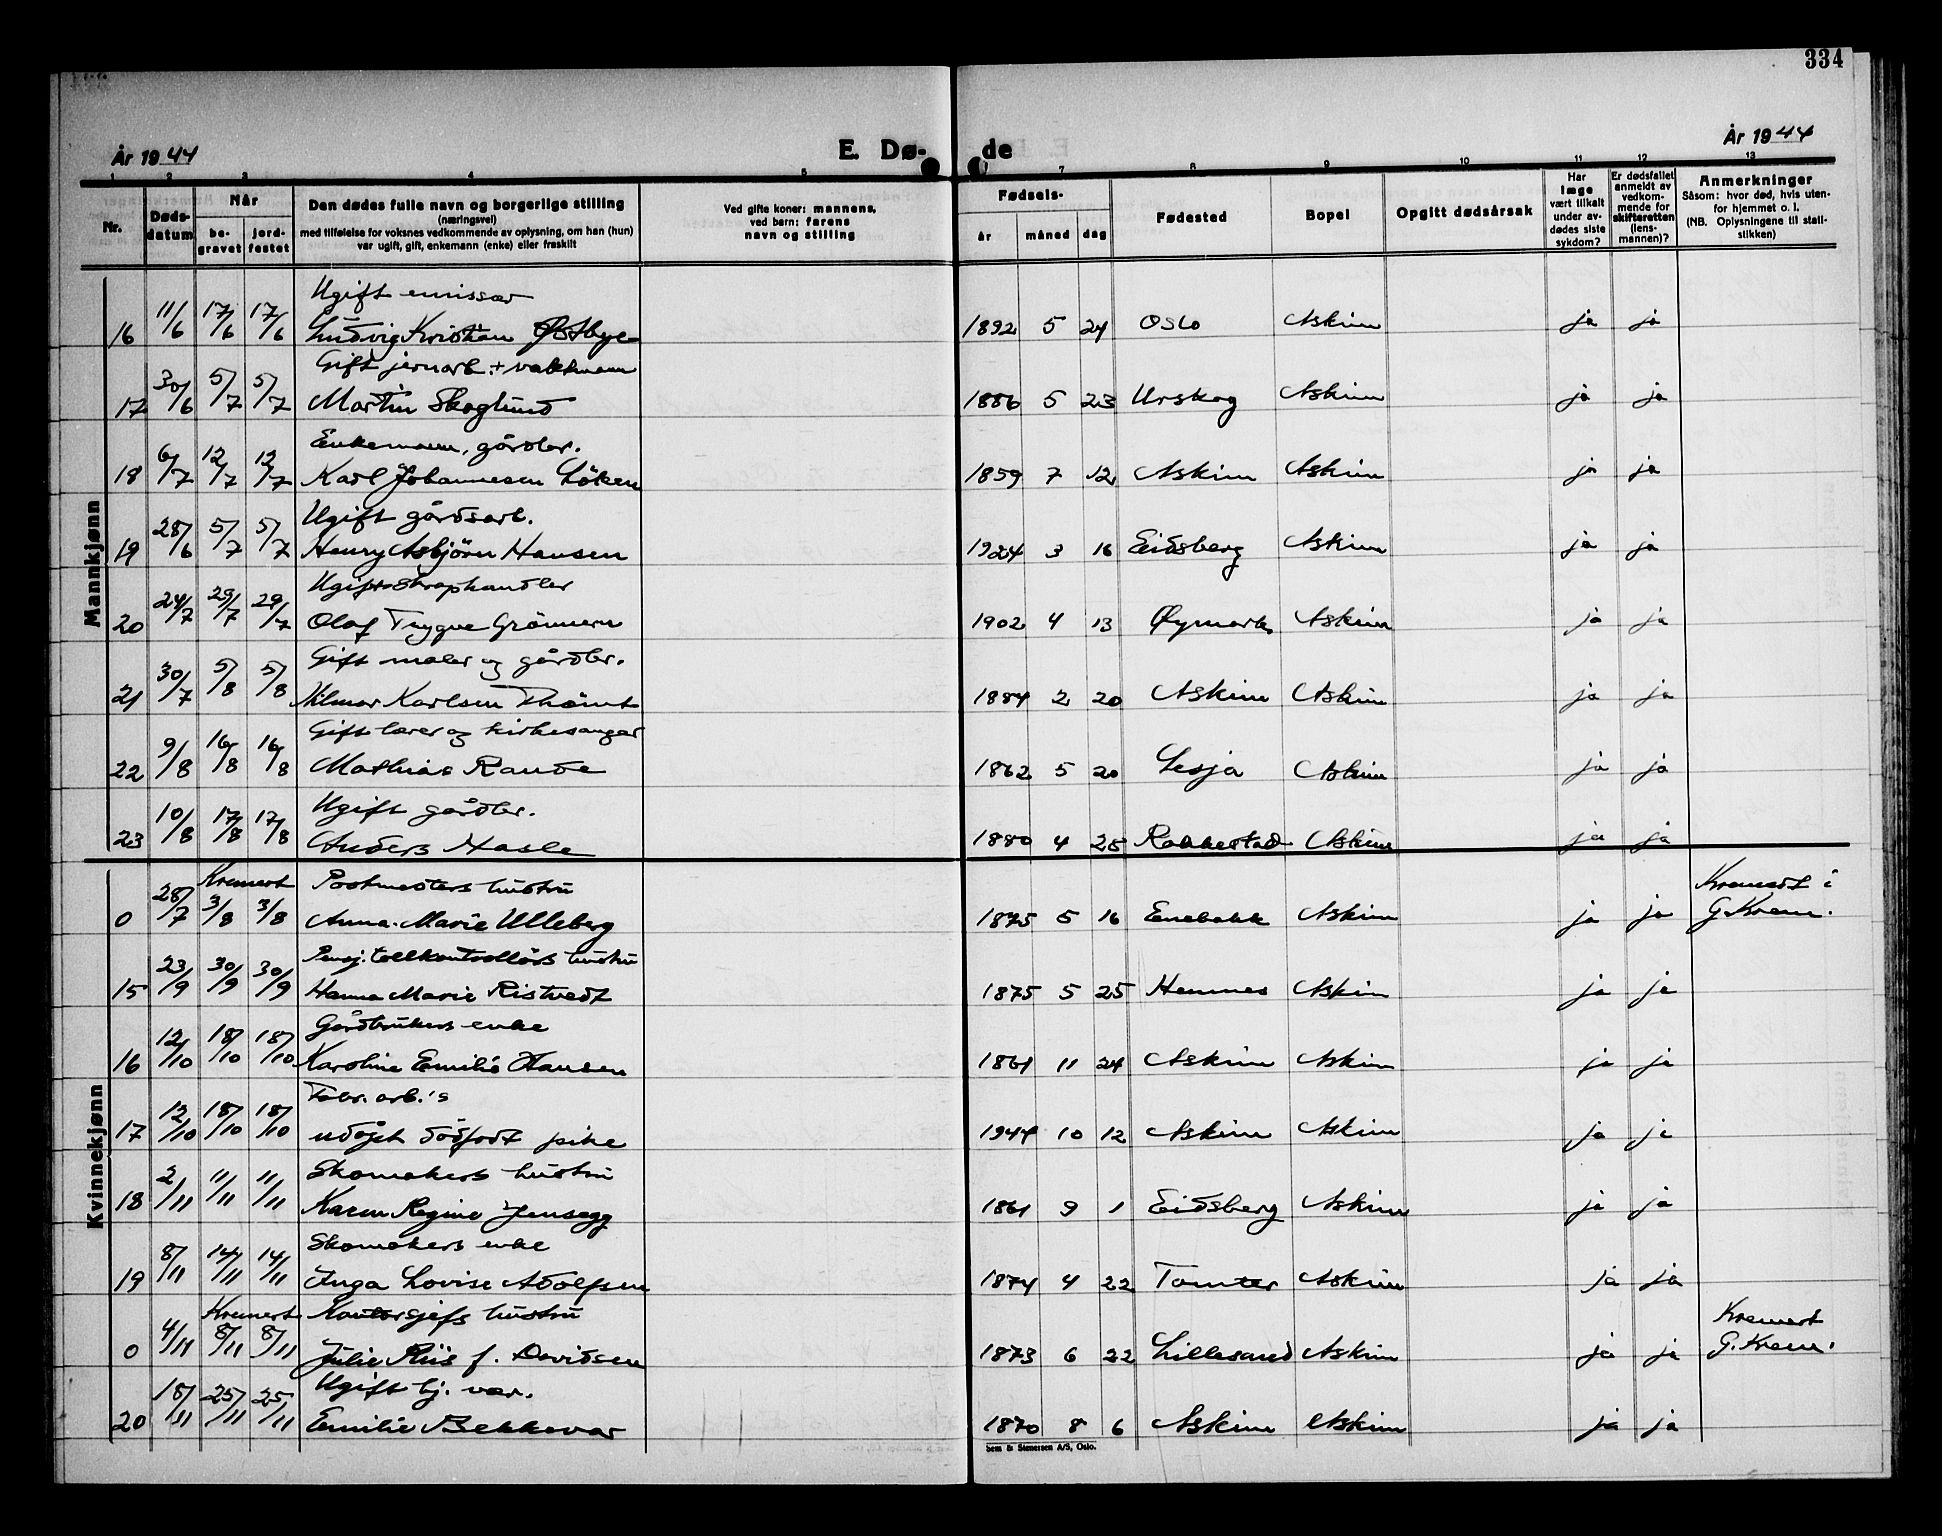 334
År 1944
E. Dø-
de
År 1944
1 2 3 4 5 7 8 9 10 11 12 13
Nr.
Døds-
datum
Når
be-
gravet
jord-
festet
Den dødes fulle navn og borgerlige stilling
(næringsvei)
med tilføielse for voksnes vedkommende av oplysning, om han (hun)
var ugift, gift, enkemann (enke) eller fraskilt
Ved gifte koner: mannens,
ved børn: farens
navn og stilling
Fødsels-
år måned dag
Fødested
Bopel
Opgitt dødsårsak
Har
læge
vært tilkalt
under av-
dødes siste
sykdom?
Er dødsfallet
anmeldt av
vedkom-
mende for
skifteretten
(lens-
mannen)?
Anmerkninger
Såsom: hvor død, hvis uten-
for hjemmet o. l.
(NB. Oplysningene til stati-
stikken)
Mannkjønn
Ugift emissær
16 11/6 17/6 17/6 Ludvig Kristian Østbye 1892 5 24 Oslo Askim ja ja
Gift jernarb. + vaktmann
17 30/6 5/7 5/7 Martin Skoglund 1886 5 23 Urskog Askim ja ja
Enkemann, gårdbr.
18 6/7 12/7 12/7 Karl Johannesen Löken 1859 7 12 Askim Askim ja ja
Ugift gårdsarb.
19 28/6 5/7 5/7 Henry Asbjörn Hansen 1924 3 16 Eidsberg Askim ja ja
Ugift Skraphandler
20 24/7 29/7 29/7 Olaf Trygve 1902 4 13 Øymark Askim ja ja
Gift maler og gårdbr.
21 30/7 5/8 5/8 Hilmar Karlsen 1884 2 20 Askim Askim ja ja
Gift lærer og kirkesanger
22 9/8 16/8 16/8 Mathias Rande 1862 5 20 Lesja Askim ja ja
Ugift gårdbr.
23 10/8 17/8 17/8 Anders Hasle 1880 4 25 Rakkestad Askim ja ja
Kvinnekjønn
Kremert Postmesters hustru Kremert i
0 28/7 3/8 3/8 Anna Marie Ulleberg 1875 5 16 Enebakk Askim ja ja G. Krem.
Pensj. tollkontrollörs hustru
15 23/9 30/9 30/9 Hanna Marie Ristvedt 1875 5 25 Hemnes Askim ja ja
Gårdbrukers enke
16 12/10 18/10 18/10 Karoline Emilie Hansen 1861 11 24 Askim Askim ja ja
Fabr. arb.'s
17 12/10 18/10 18/10 udöpt dödfödt pike 1944 10 12 Askim Askim ja ja
Skomakers hustru
18 2/11 11/11 11/11 Karen Regine Jensegg 1861 9 1 Eidsberg Askim ja ja
Skomakers enke
19 8/11 14/11 14/11 Inga Lovise Adolfsen 1874 4 22 Tomter Askim ja ja
Kremert Kontorsjefs hustru Kremert
0 4/11 8/11 8/11 Julie Riis f. Davidsen 1873 6 22 Lillesand Askim ja ja G. Krem.
Ugift hj. vær.
20 18/11 25/11 25/11 Emilie Bekkevar 1870 8 6 Askim Askim ja ja
Sem & Stenersen A/S, Oslo.